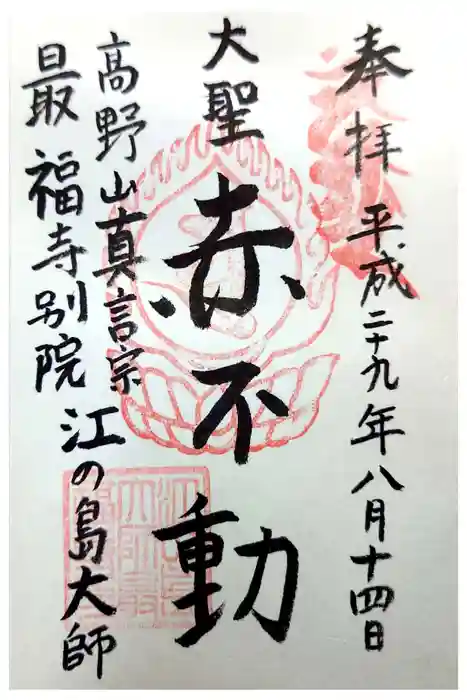 奉拝 平成二十九年八月十四日
大聖
赤不動
高野山真言宗
最福寺別院 江の島大師